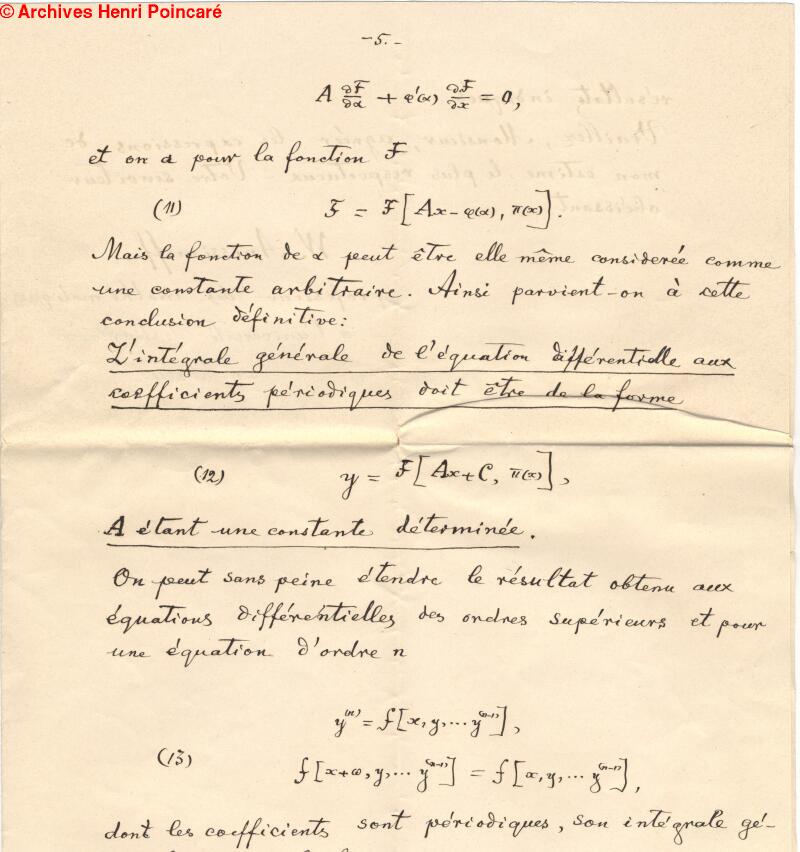 © Archives Henri Poincaré
-5.-
A ∂F/∂α + φ'(α) ∂F/∂x = 0,
et on a pour la fonction F
(11) F = F[Ax-φ(α), π(x)].
Mais la fonction de α peut être elle même considerée comme
une constante arbitraire. Ainsi parvient-on à cette
conclusion définitive:
L'intégrale générale de l'équation différentielle aux
coefficients périodiques doit être de la forme
(12) y = F[Ax+C, π(x)],
A étant une constante déterminée.
On peut sans peine étendre le résultat obtenu aux
équations différentielles des ordres supérieurs et pour
une équation d'ordre n
y⁽ⁿ⁾ = f[x, y, ... y⁽ⁿ⁻¹⁾],
(13)
f[x+ω, y, ... y⁽ⁿ⁻¹⁾] = f[x, y, ... y⁽ⁿ⁻¹⁾],
dont les coefficients sont périodiques, son intégrale gé-